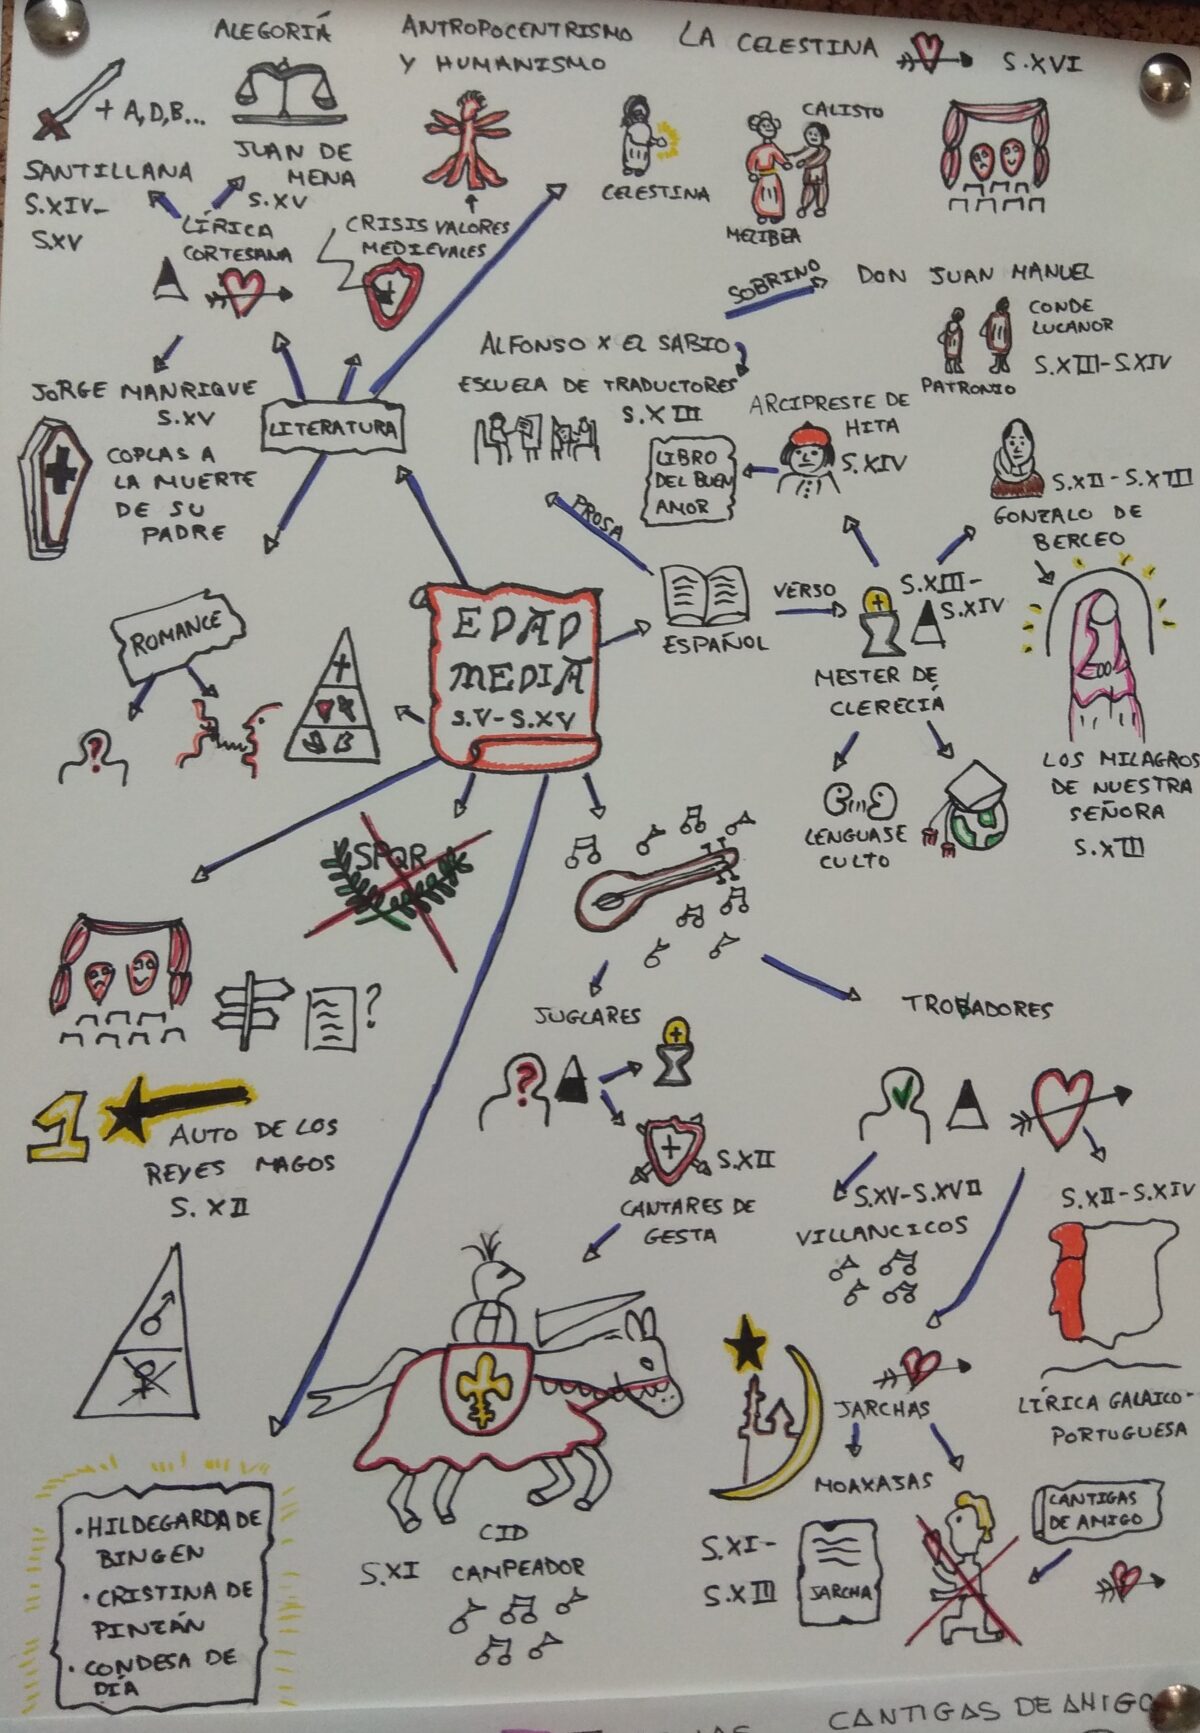 ALEGORIÁ
ANTROPOCENTRISMO
Y HUMANISMO
LA CELESTINA
S.XVI
+ A, D, B...
SANTILLANA
S.XIV-
S.XV
JUAN DE
MENA
S.XV
LÍRICA
CORTESANA
CRISIS VALORES
MEDIEVALES
CELESTINA
CALISTO
MELIBEA
SOBRINO
DON JUAN MANUEL
CONDE
LUCANOR
S.XIII-S.XIV
PATRONIO
ALFONSO X EL SABIO
ESCUELA DE TRADUCTORES
S.XIII
JORGE MANRIQUE
S.XV
COPLAS A
LA MUERTE
DE SU
PADRE
LITERATURA
ARCIPRESTE DE
HITA
S.XIV
LIBRO
DEL BUEN
AMOR
S.XII-S.XIII
GONZALO DE
BERCEO
PROSA
EDAD
MEDIA
S.V-S.XV
ESPAÑOL
VERSO
S.XIII-
S.XIV
MESTER DE
CLERECIÁ
LENGUAJE
CULTO
LOS MILAGROS
DE NUESTRA
SEÑORA
S.XIII
ROMANCE
?
SPQR
?
1
AUTO DE LOS
REYES MAGOS
S.XII
JUGLARES
?
S.XII
CANTARES DE
GESTA
TROBADORES
S.XV-S.XVII
VILLANCICOS
S.XII-S.XIV
LÍRICA GALAICO-
PORTUGUESA
JARCHAS
MOAXAJAS
S.XI-
S.XIII
JARCHA
CANTIGAS
DE AMIGO
CID
S.XI CAMPEADOR
·HILDEGARDA DE
BINGEN
·CRISTINA DE
PINZÁN
·CONDESA DE
DÍA
CANTIGAS DE AMIGO